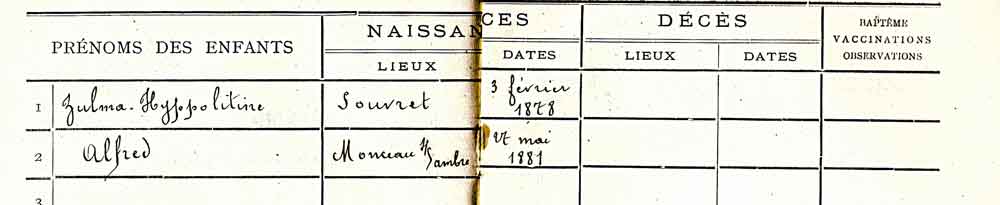 PRÉNOMS DES ENFANTS
NAISSANCES
DÉCÈS
BAPTÊME
VACCINATIONS
OBSERVATIONS
LIEUX
DATES
LIEUX
DATES
1 Zulma-Hyppolitine Souvret 3 février
1878
2 Alfred Monceau s/Sambre mai
1881
3